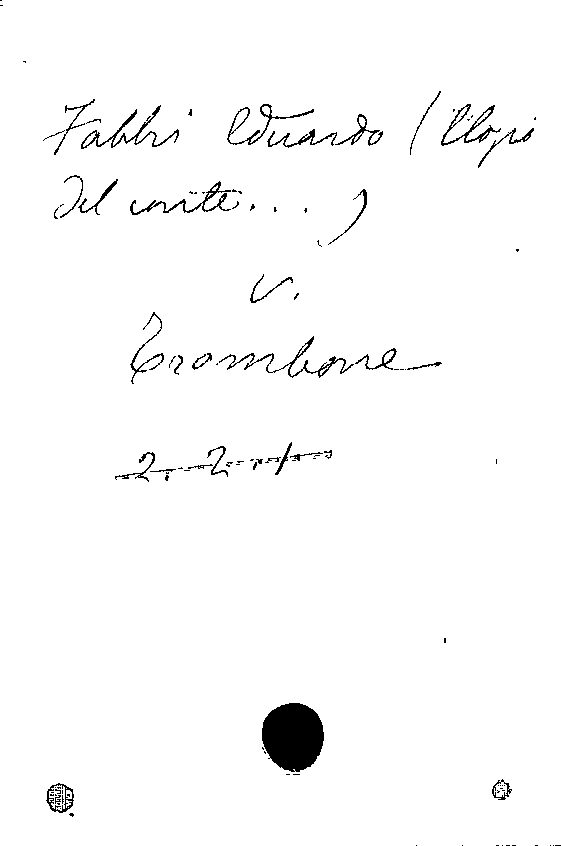 Fabbri Eduardo (Elogio
del conte...)
v.
Trombone
2. 2.